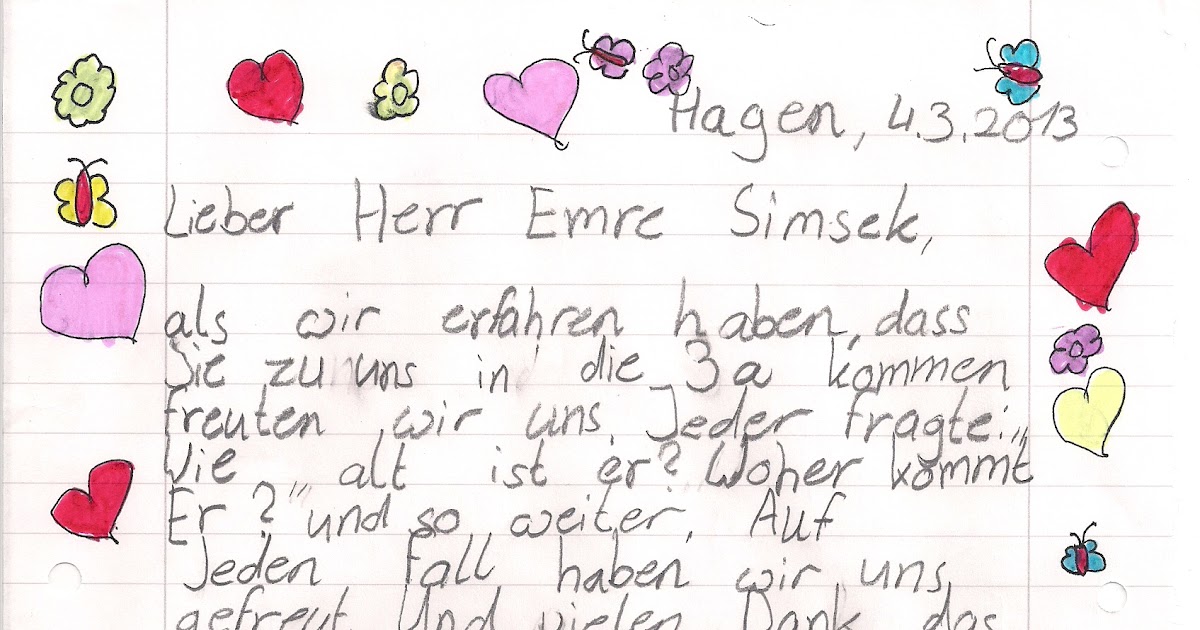 Hagen, 4.3.2013
Lieber Herr Emre Simsek,
als wir erfahren haben, dass
Sie zu uns in die 3a kommen
freuten wir uns. Jeder fragte: „
Wie alt ist er? Woher kommt
Er?" und so weiter. Auf
Jeden Fall haben wir uns
gefreut. Und vielen Dank das